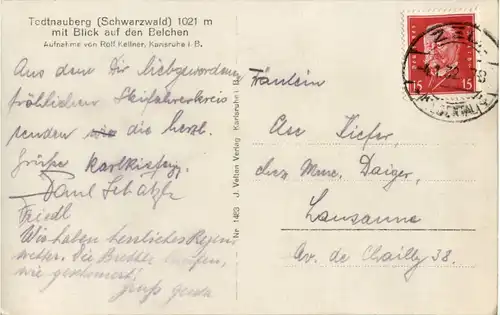 Todtnauberg (Schwarzwald) 1021 m
mit Blick auf den Belchen
Aufnahme von Rolf Kellner, Karlsruhe i. B.
Aus dem Dir liebgewordenen
fröhlichen Skifahrerkreis
senden wir die herzl.
Grüße
Paul
Friedl
Wir haben herrliches Regen-
wetter. Die Bretter laufen,
wie geschmiert!
Gruß Gerda
Nr. 1463 J. Velten Verlag Karlsruhe i. B.
Fräulein
Ase Kiefer,
chez Mme. Daiger,
Lausanne
Av. de Chailly 38.
15 15
ZELL